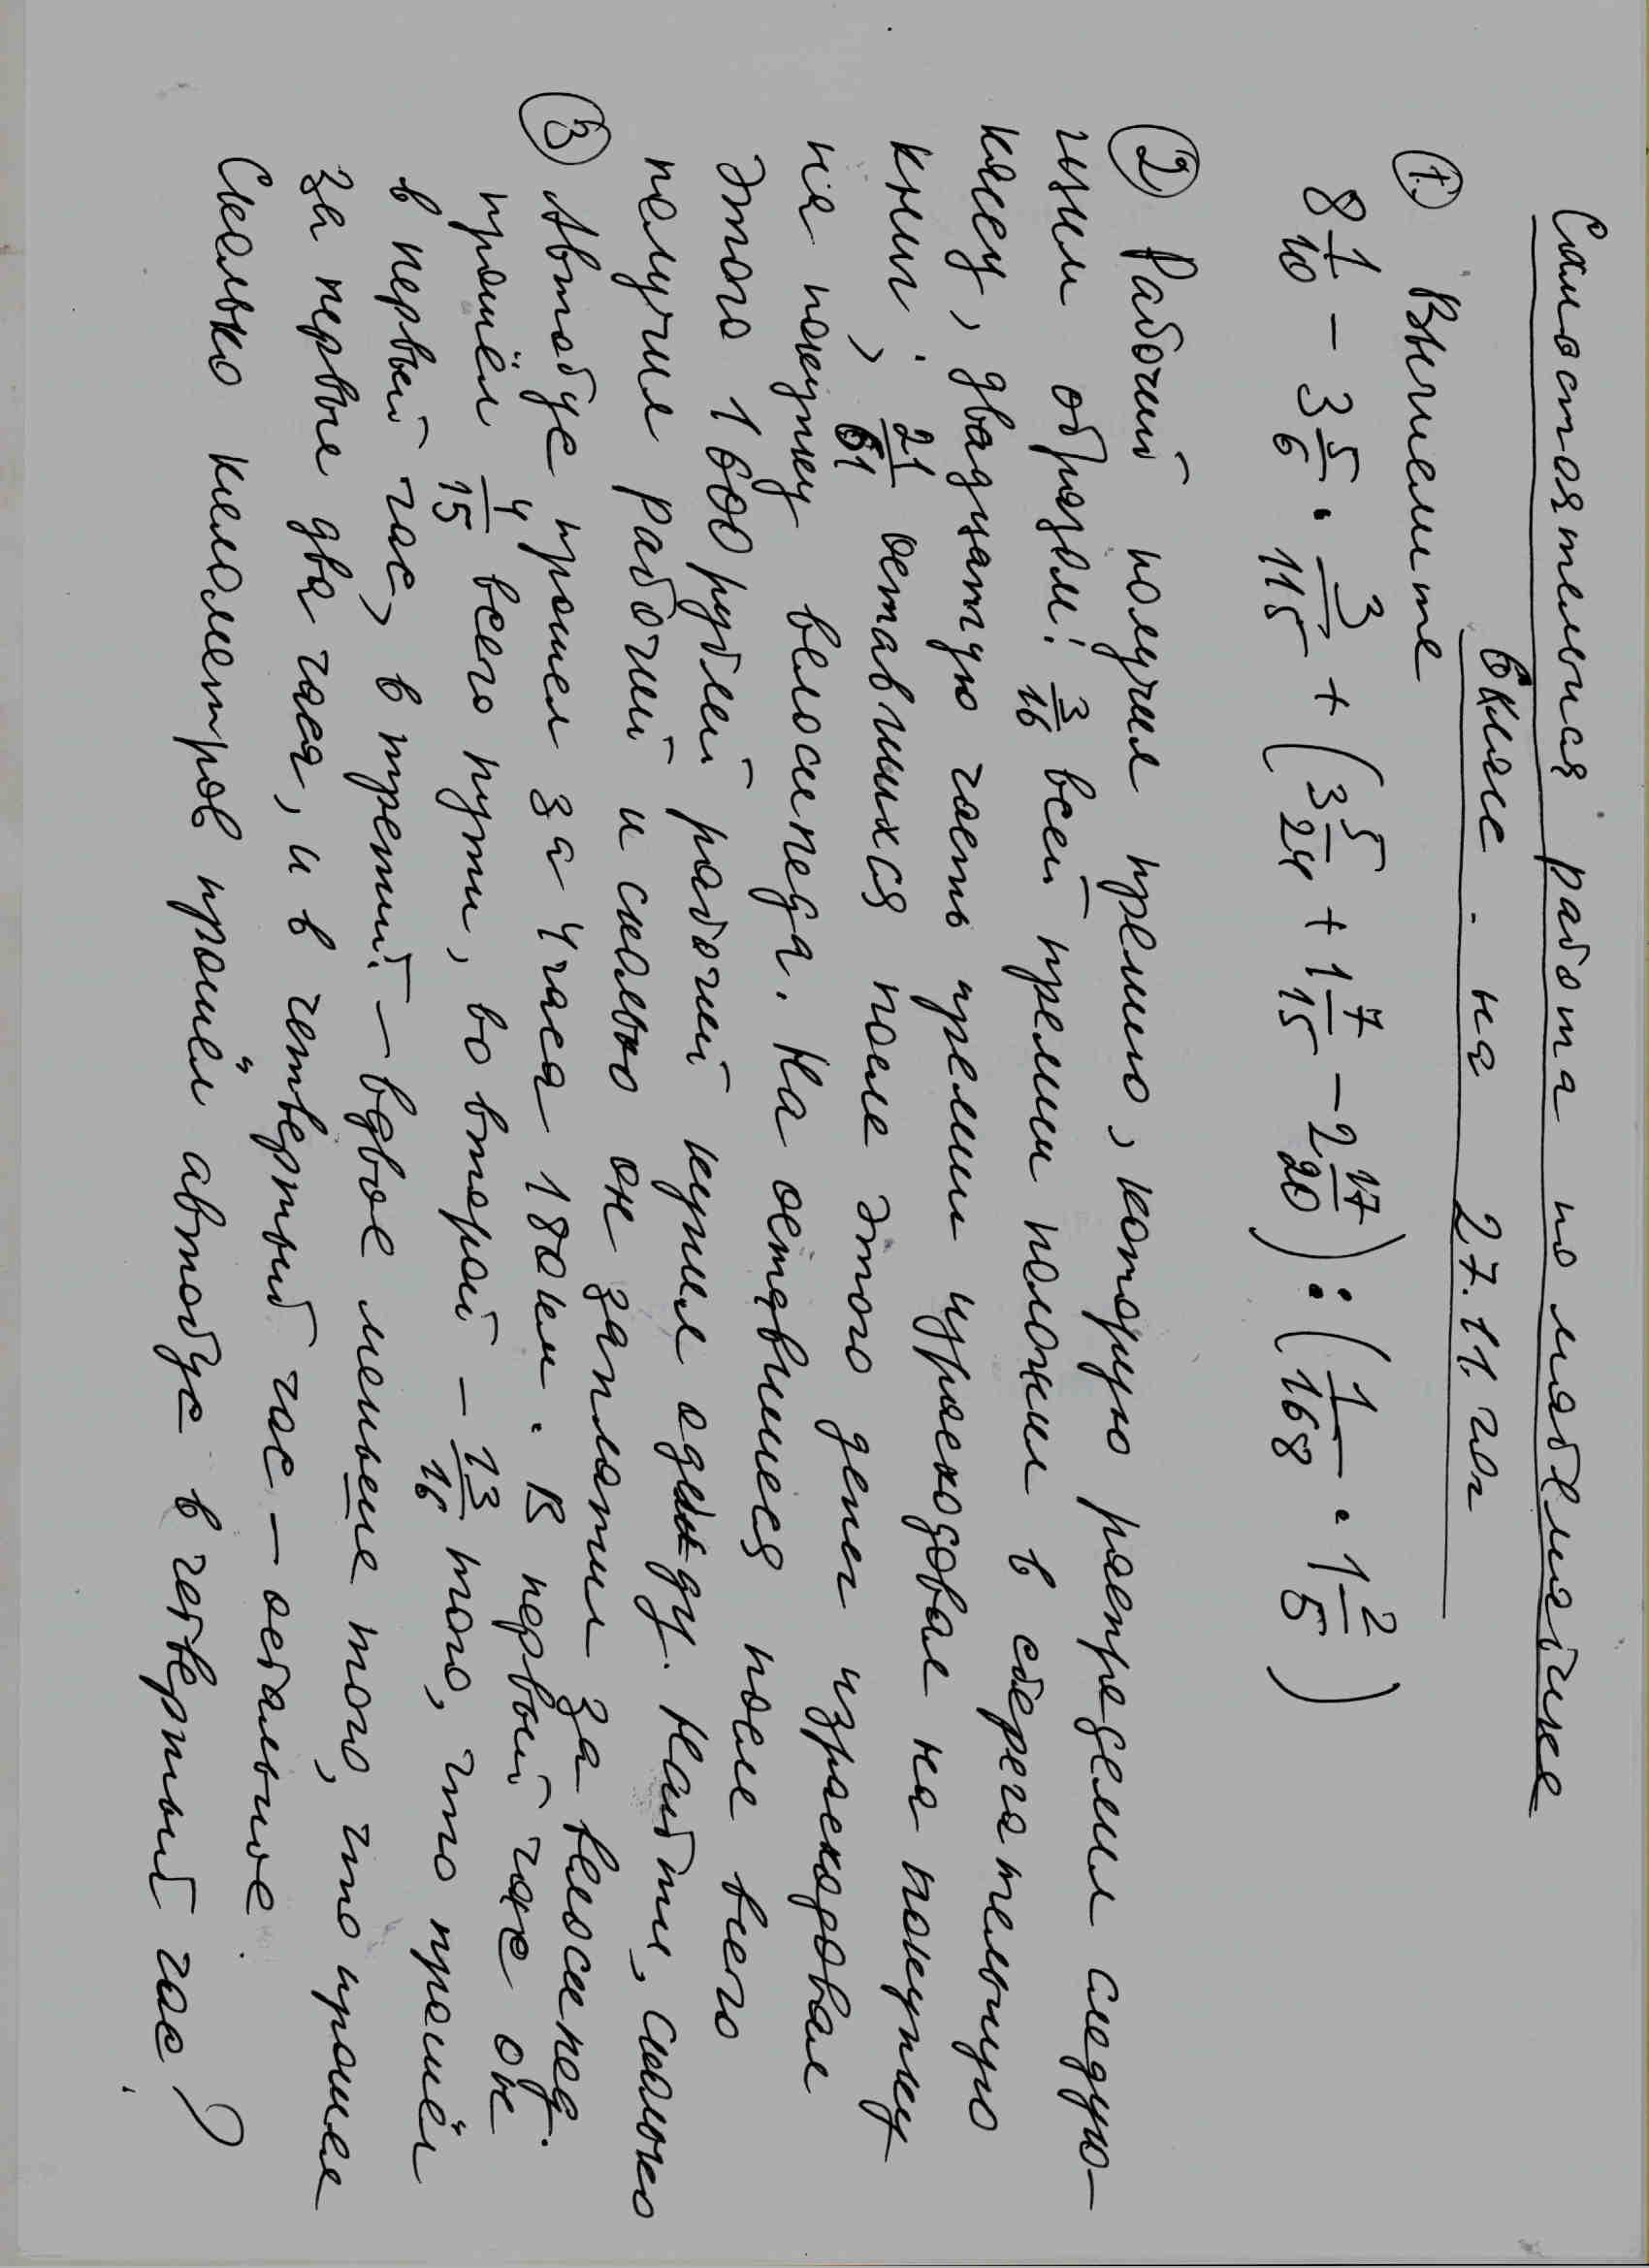 Самостоятельная работа по математике
6 класс. на 27.11. год
① Вычислите
8 1/10 - 3 5/6 · 3/115 + (3 5/24 + 1 7/15 - 2 17/20) : (1/168 · 1 2/5)
② Рабочий получил премию, которую распределил следую-
щим образом: 3/16 всей премии положил в сберегательную
кассу, двадцатую часть премии израсходовал на покупку
книг, 21/61 оставшихся после этого денег израсходовал
на покупку велосипеда. На оставшиеся после всего
этого 1600 рублей рабочий купил одежду. Найти, сколько
получил рабочий и сколько он заплатил за велосипед.
③ Автобус прошел за 4 часа 180 км. В первый час он
прошёл 4/15 всего пути, во второй - 13/16 того, что прошёл
в первый час, в третий - вдвое меньше того, что прошел
за первые два часа, и в четвертый час - остальное.
Сколько километров прошёл автобус в четвертый час?